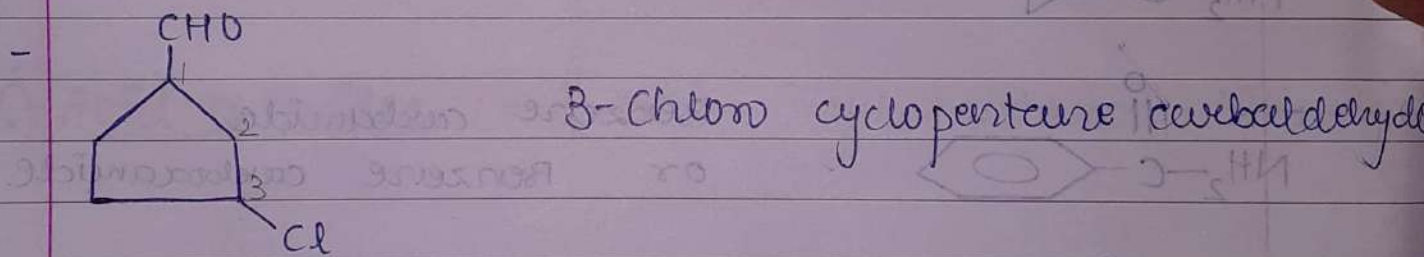 CHO
1
2
3-Chloro cyclopentane carbaldehyd
3
Cl